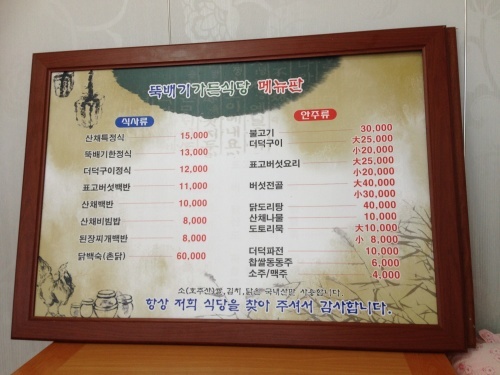 뚝배기가든식당 메뉴판
식사류
산채특정식 15,000
뚝배기한정식 13,000
더덕구이정식 12,000
표고버섯백반 11,000
산채백반 10,000
산채비빔밥 8,000
된장찌개백반 8,000
닭백숙(촌닭) 60,000
안주류
불고기 30,000
더덕구이 大25,000
小20,000
표고버섯요리 大25,000
小20,000
버섯전골 大40,000
小30,000
닭도리탕 40,000
산채나물 10,000
도토리묵 大10,000
小 8,000
더덕파전 10,000
찹쌀동동주 6,000
소주/맥주 4,000
소(호주산)쌀,김치,닭은 국내산만 사용합니다.
항상 저희 식당을 찾아 주셔서 감사합니다.